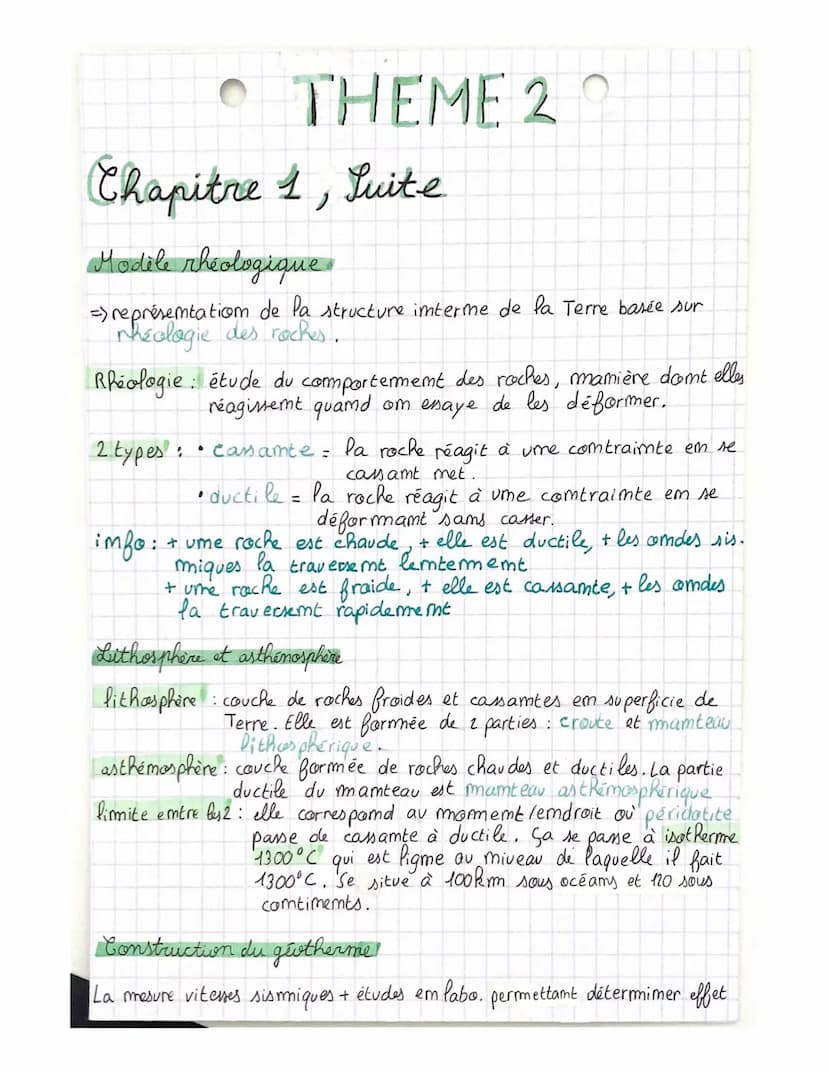 THEME 2
Chapitre 1, Suite
Modèle rhéologique
=> représentation de la structure interne de la Terre basée sur
rhéologie des roches.
Rhéologie : étude du comportement des roches, manière dont elles
réagissent quand on essaye de les déformer.
2 types : • cassante = la roche réagit à une contrainte en se
cassant net.
• ductile = la roche réagit à une contrainte en se
déformant sans casser.
info : + une roche est chaude, + elle est ductile, + les ondes sis-
miques la traversent lentement
+ une roche est froide, + elle est cassante, + les ondes
la traversent rapidement
Lithosphère et asthénosphère
lithosphère : couche de roches froides et cassantes en superficie de
Terre. Elle est formée de 2 parties : croute et manteau
lithosphérique.
asthénosphère : couche formée de roches chaudes et ductiles. La partie
ductile du manteau est manteau asthénosphérique
limite entre les 2 : elle correspond au moment/endroit où péridotite
passe de cassante à ductile. Ça se passe à isotherme
1300°C qui est ligne au niveau de laquelle il fait
1300°C. Se situe à 100km sous océans et 120 sous
continents.
Construction du géotherme
La mesure vitesses sismiques + études en labo. permettant déterminer effet